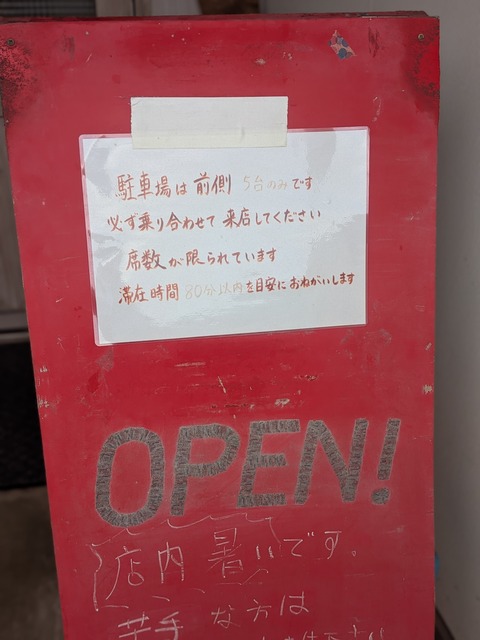 駐車場は前側 5台のみです
必ず乗り合わせて来店してください
席数が限られています
滞在時間 80分以内を目安におねがいします
OPEN!
店内暑いです。
苦手な方は